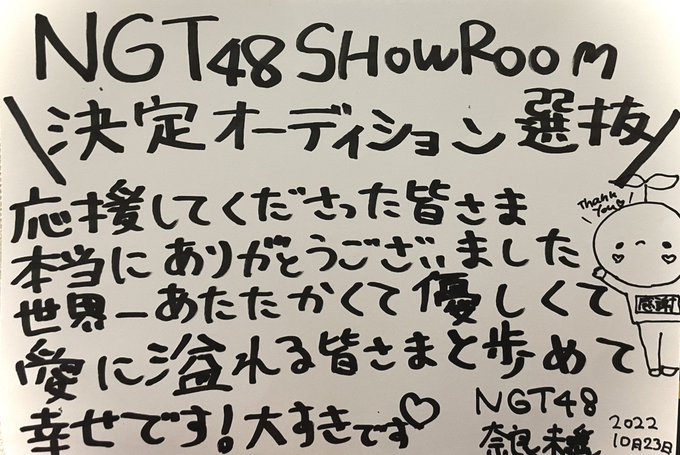 NGT48 SHOWROOM
\決定オーディション選抜/
応援してくださった皆さま
Thank You♡!
本当にありがとうございました
世界一あたたかくて優しくて
感謝
愛に溢れる皆さまと歩めて
幸せです!大すきです♡
NGT48
奈良未遥
2022
10月23日